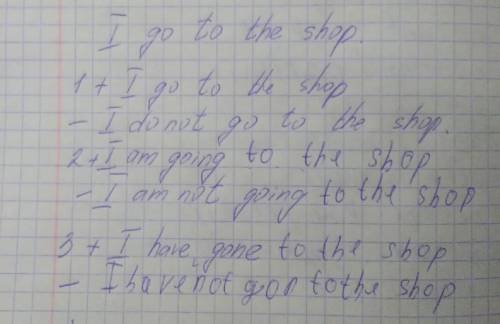 I go to the shop.
1 + I go to the shop
- I do not go to the shop.
2 + I am going to the shop
- I am not going to the shop
3 + I have gone to the shop
- I have not gon to the shop